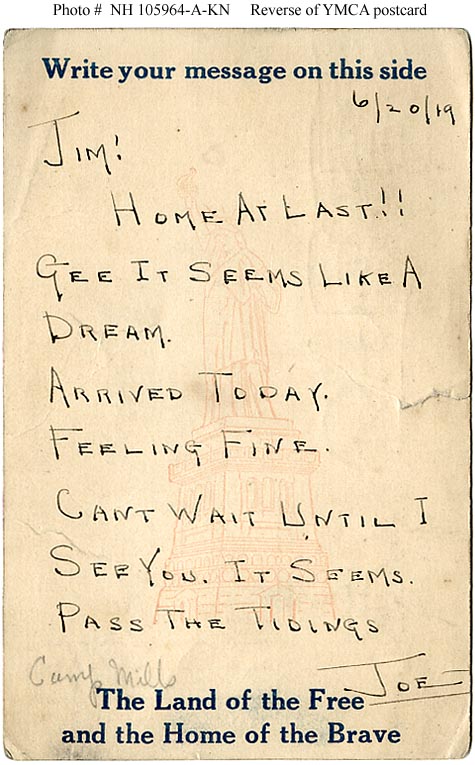 Photo # NH 105964-A-KN Reverse of YMCA postcard
Write your message on this side
6/20/19
JIM!
HOME AT LAST!!
GEE IT SEEMS LIKE A
DREAM.
ARRIVED TODAY.
FEELING FINE.
CANT WAIT UNTIL I
SEE YOU. IT SEEMS.
PASS THE TIDINGS
JOE
Camp Mills
The Land of the Free
and the Home of the Brave